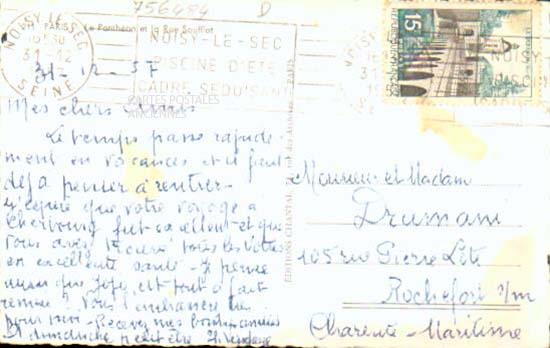 756484 D
PARIS Le Panthéon et la Rue Soufflot
NOISY-LE-SEC
31-12
SEINE
NOISY-LE-SEC
PISCINE D'ETE
CADRE SEDUISANT
15
31-12-57
CARTES POSTALES
ANCIENNES
EDITIONS CHANTAL
PARIS
Mes chers
Le temps passe rapide-
ment en vacances et il faut
déjà penser à rentrer-
J'espère que votre voyage à
Cherbourg fut excellent et que
vous avez trouvé tous les vôtres
en excellente santé - Je pense
aussi que est tout à fait
remise ? Vous l'embrasserez
pour moi - Recevez mes bonnes amitiés
dimanche peut être
Monsieur et Madam
105 rue Pierre Loti
Rochefort s/m
Charente-Maritime